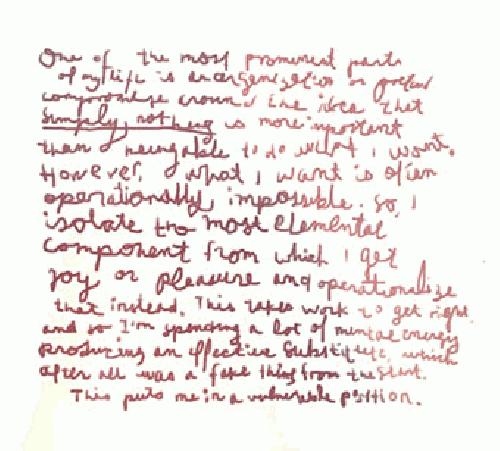 One of the most prominent parts
of my life is an
compromise around the idea that
simply, nothing is more important
than being able to do what I want.
However, what I want is often
operationally impossible. So, I
isolate the most elemental
component from which I get
joy or pleasure and operationalize
that instead. This takes work to get right
and so I'm spending a lot of mental energy
producing an effective substitute, which
after all was a fake thing from the start.
This puts me in a vulnerable position.